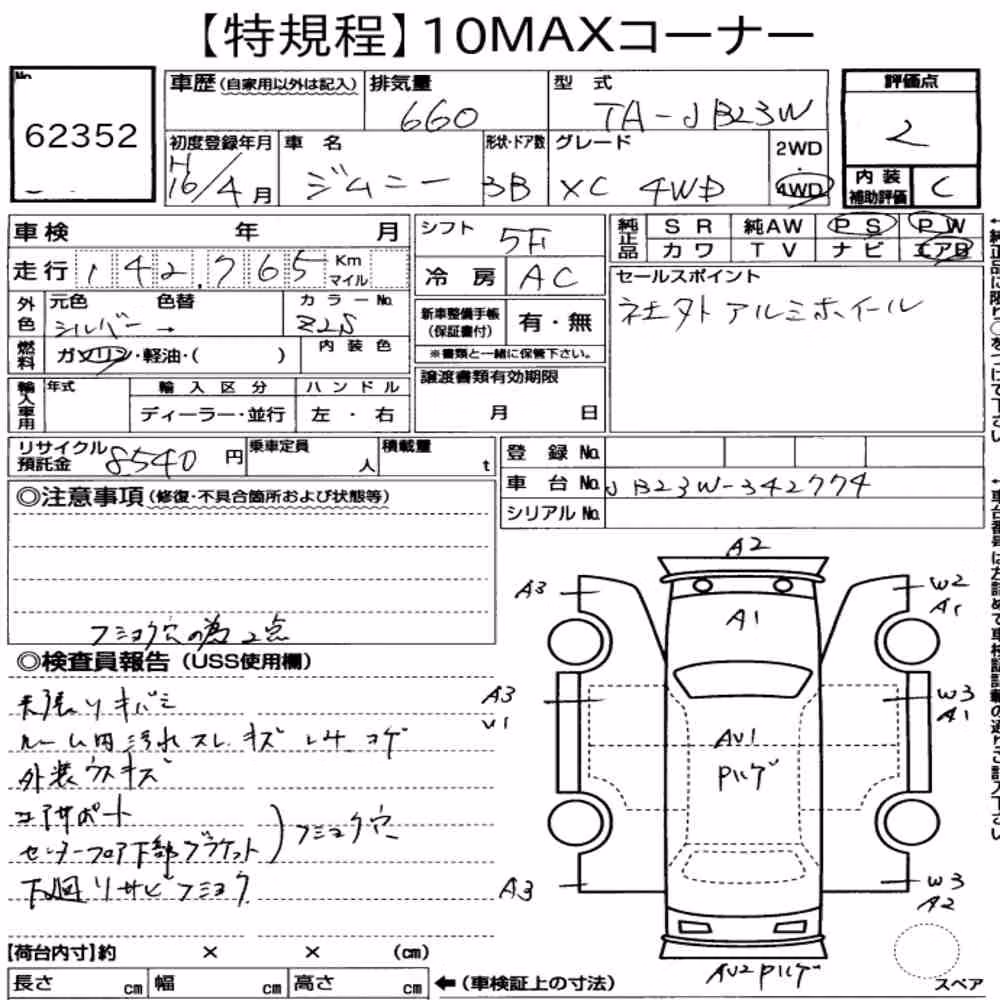 【特規程】10MAXコーナー
No. 62352
車歴 (自家用以外は記入) 排気量 660 型式 TA-JB23W 評価点 2
初度登録年月 H16/4月 車名 ジムニー 形状・ドア数 3B グレード XC 4WD 2WD・4WD 内装補助評価 C
車検 年 月 シフト 5F 純正品 SR 純AW PS PW
走行 142,765 Km マイル 冷房 AC カワ TV ナビ エアB
外色 元色 シルバー → 色替 カラーNo. Z2S
新車整備手帳(保証書付) 有・無
※書類と一緒に保管下さい。
セールスポイント
社外アルミホイール
燃料 ガソリン・軽油・( ) 内装色
輸入車用 年式 輸入区分 ハンドル
ディーラー・並行 左・右
譲渡書類有効期限
月 日
リサイクル預託金 8540円 乗車定員 人 積載量 t
登録No.
車台No. JB23W-342774
シリアルNo.
◎注意事項(修復・不具合箇所および状態等)
フショク穴の為2点
◎検査員報告(USS使用欄)
ルーム内汚れスレ.キズ
外装ウスキズ
コアサポート
センターフロア下部ブラケット
)フショク穴
下廻リサビフショク
A2
A3
W2
A1
A1
A3
U1
W3
A1
AU1
A3
W3
A2
【荷台内寸】約 × × (cm)
長さ cm 幅 cm 高さ cm ←(車検証上の寸法)
スペア